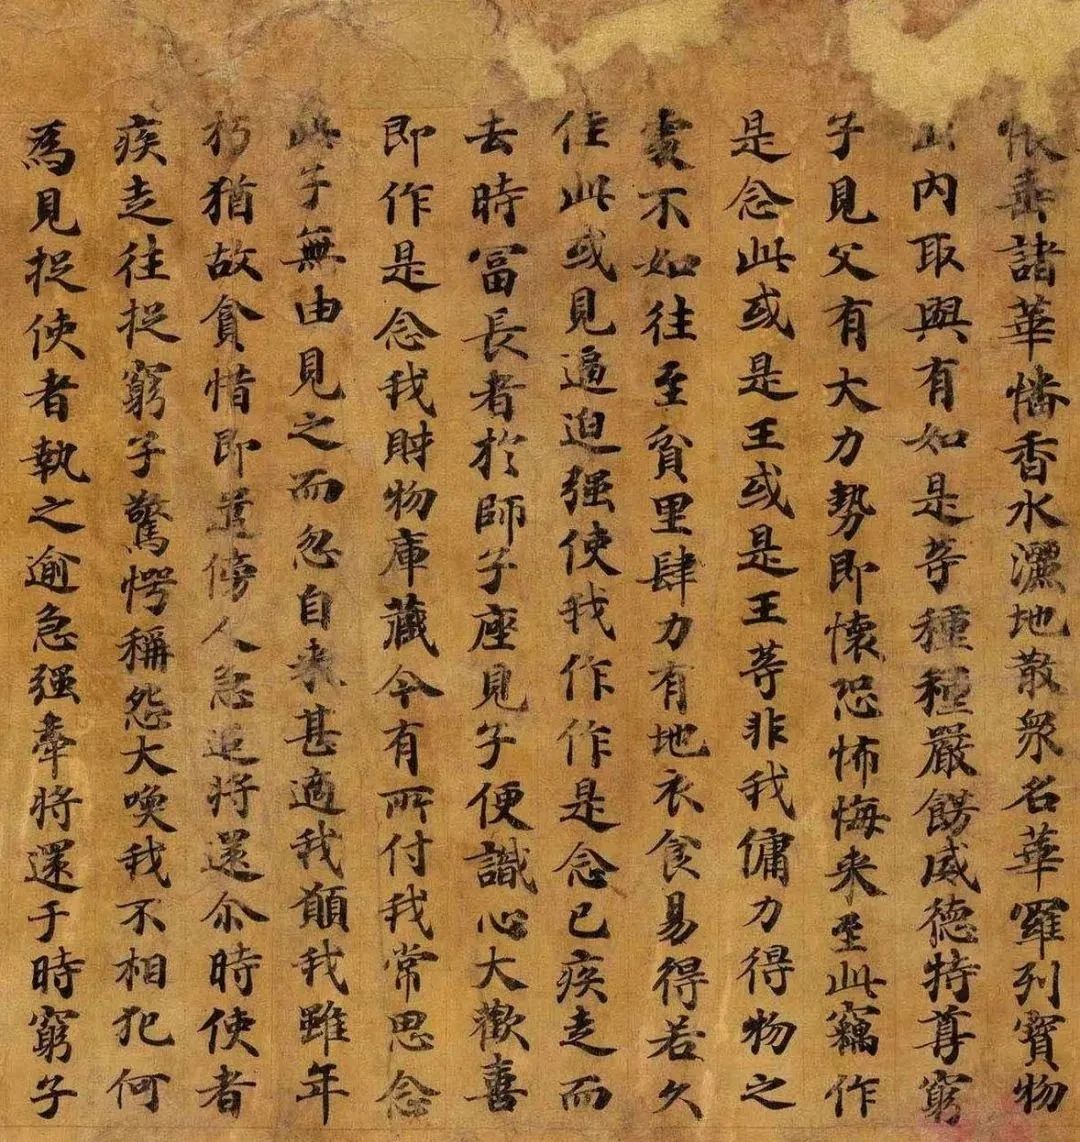 帳垂諸華幡香水灑地散衆名華羅列寶物
出内取與有如是等種種嚴餝威德特尊窮
子見父有大力勢即懷恐怖悔来至此竊作
是念此或是王或是王等非我傭力得物之
處不如往至貧里肆力有地衣食易得若久
住此或見逼迫强使我作作是念已疾走而
去時冨長者於師子座見子便識心大歡喜
即作是念我財物庫藏今有所付我常思念
此子無由見之而忽自来甚適我願我雖年
朽猶故貪惜即遣傍人急追將還尒時使者
疾走往捉窮子驚愕稱怨大喚我不相犯何
爲見捉使者執之逾急强牽將還于時窮子